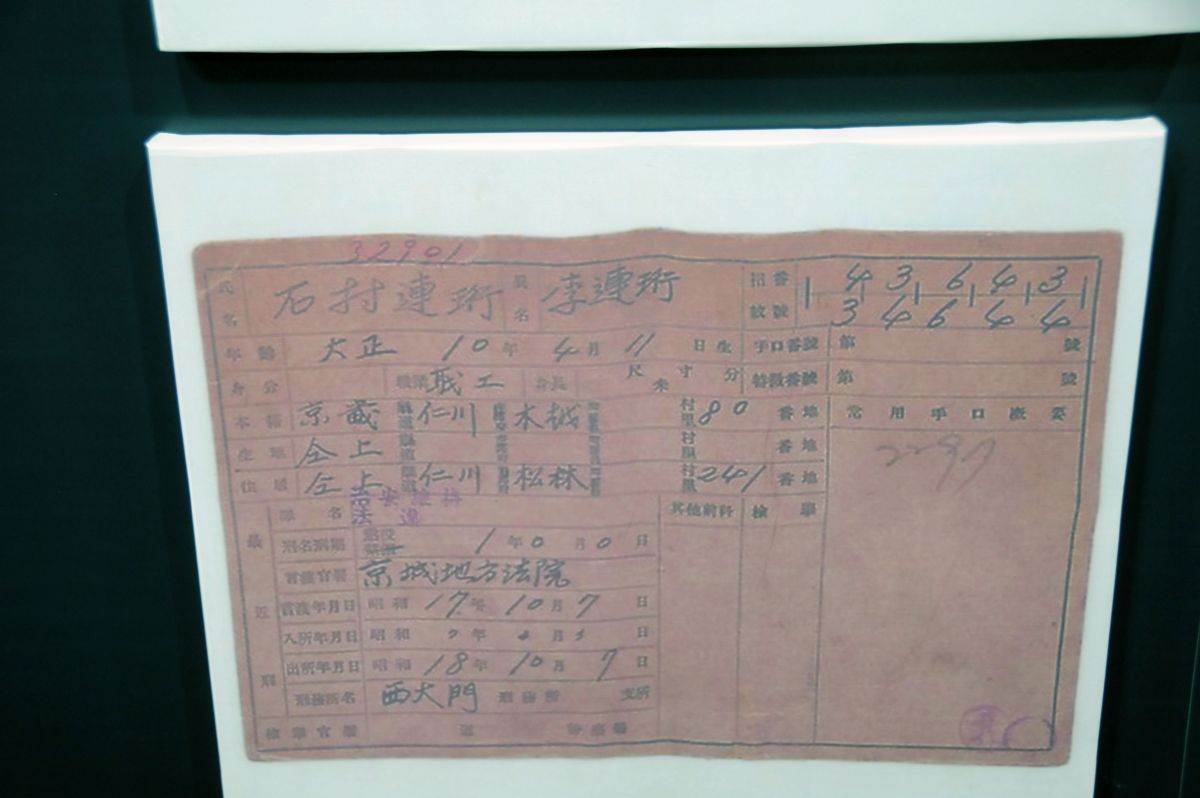 32901
氏名 石村連珩 異名 李連珩 指番 43643
紋號 34644
年齡 大正 10年 4月 11日生 手口番號 第 號
身分 職業 職工 身長 尺寸分 米 特徵番號 第 號
本籍 京畿 仁川 木越 村里 80 番地 常用手口槪要
生地 仝上 村里 番地 2297
住居 仝上 仁川 松林 村里 241 番地
最近刑 罪名 治安維持法違 其他前科 檢擧
刑名刑期 懲役 1年0月0日
言渡官署 京城地方法院
言渡年月日 昭和 17年 10月 7日
入所年月日 昭和 年 月 日
出所年月日 昭和 18年 10月 7日
刑務所名 西大門 刑務所 支所
檢擧官署 道 警察署